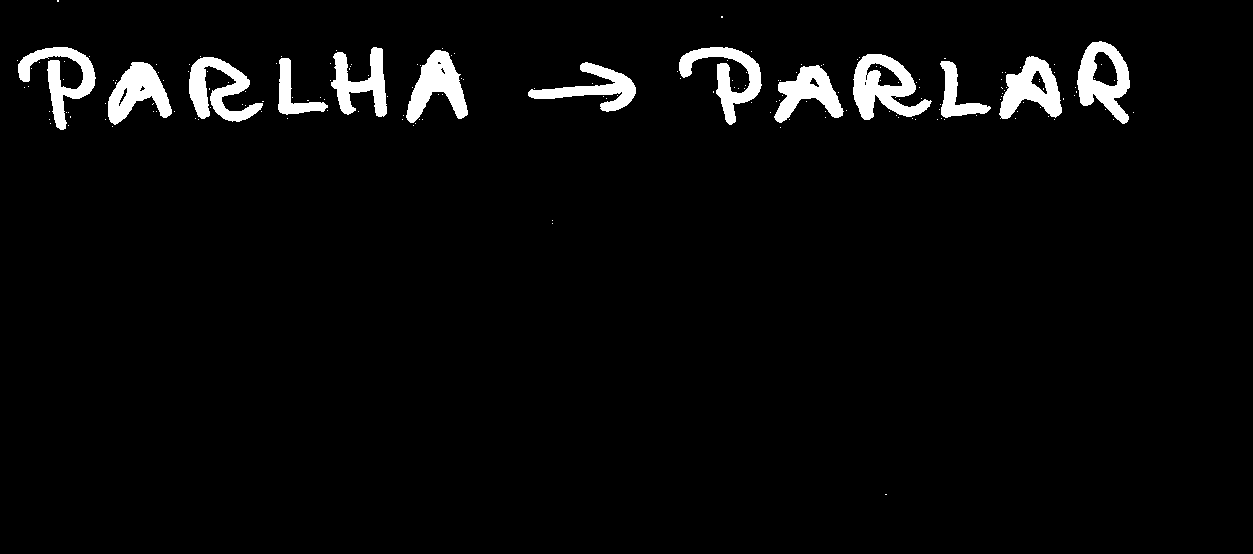 PARLHA → PARLAR